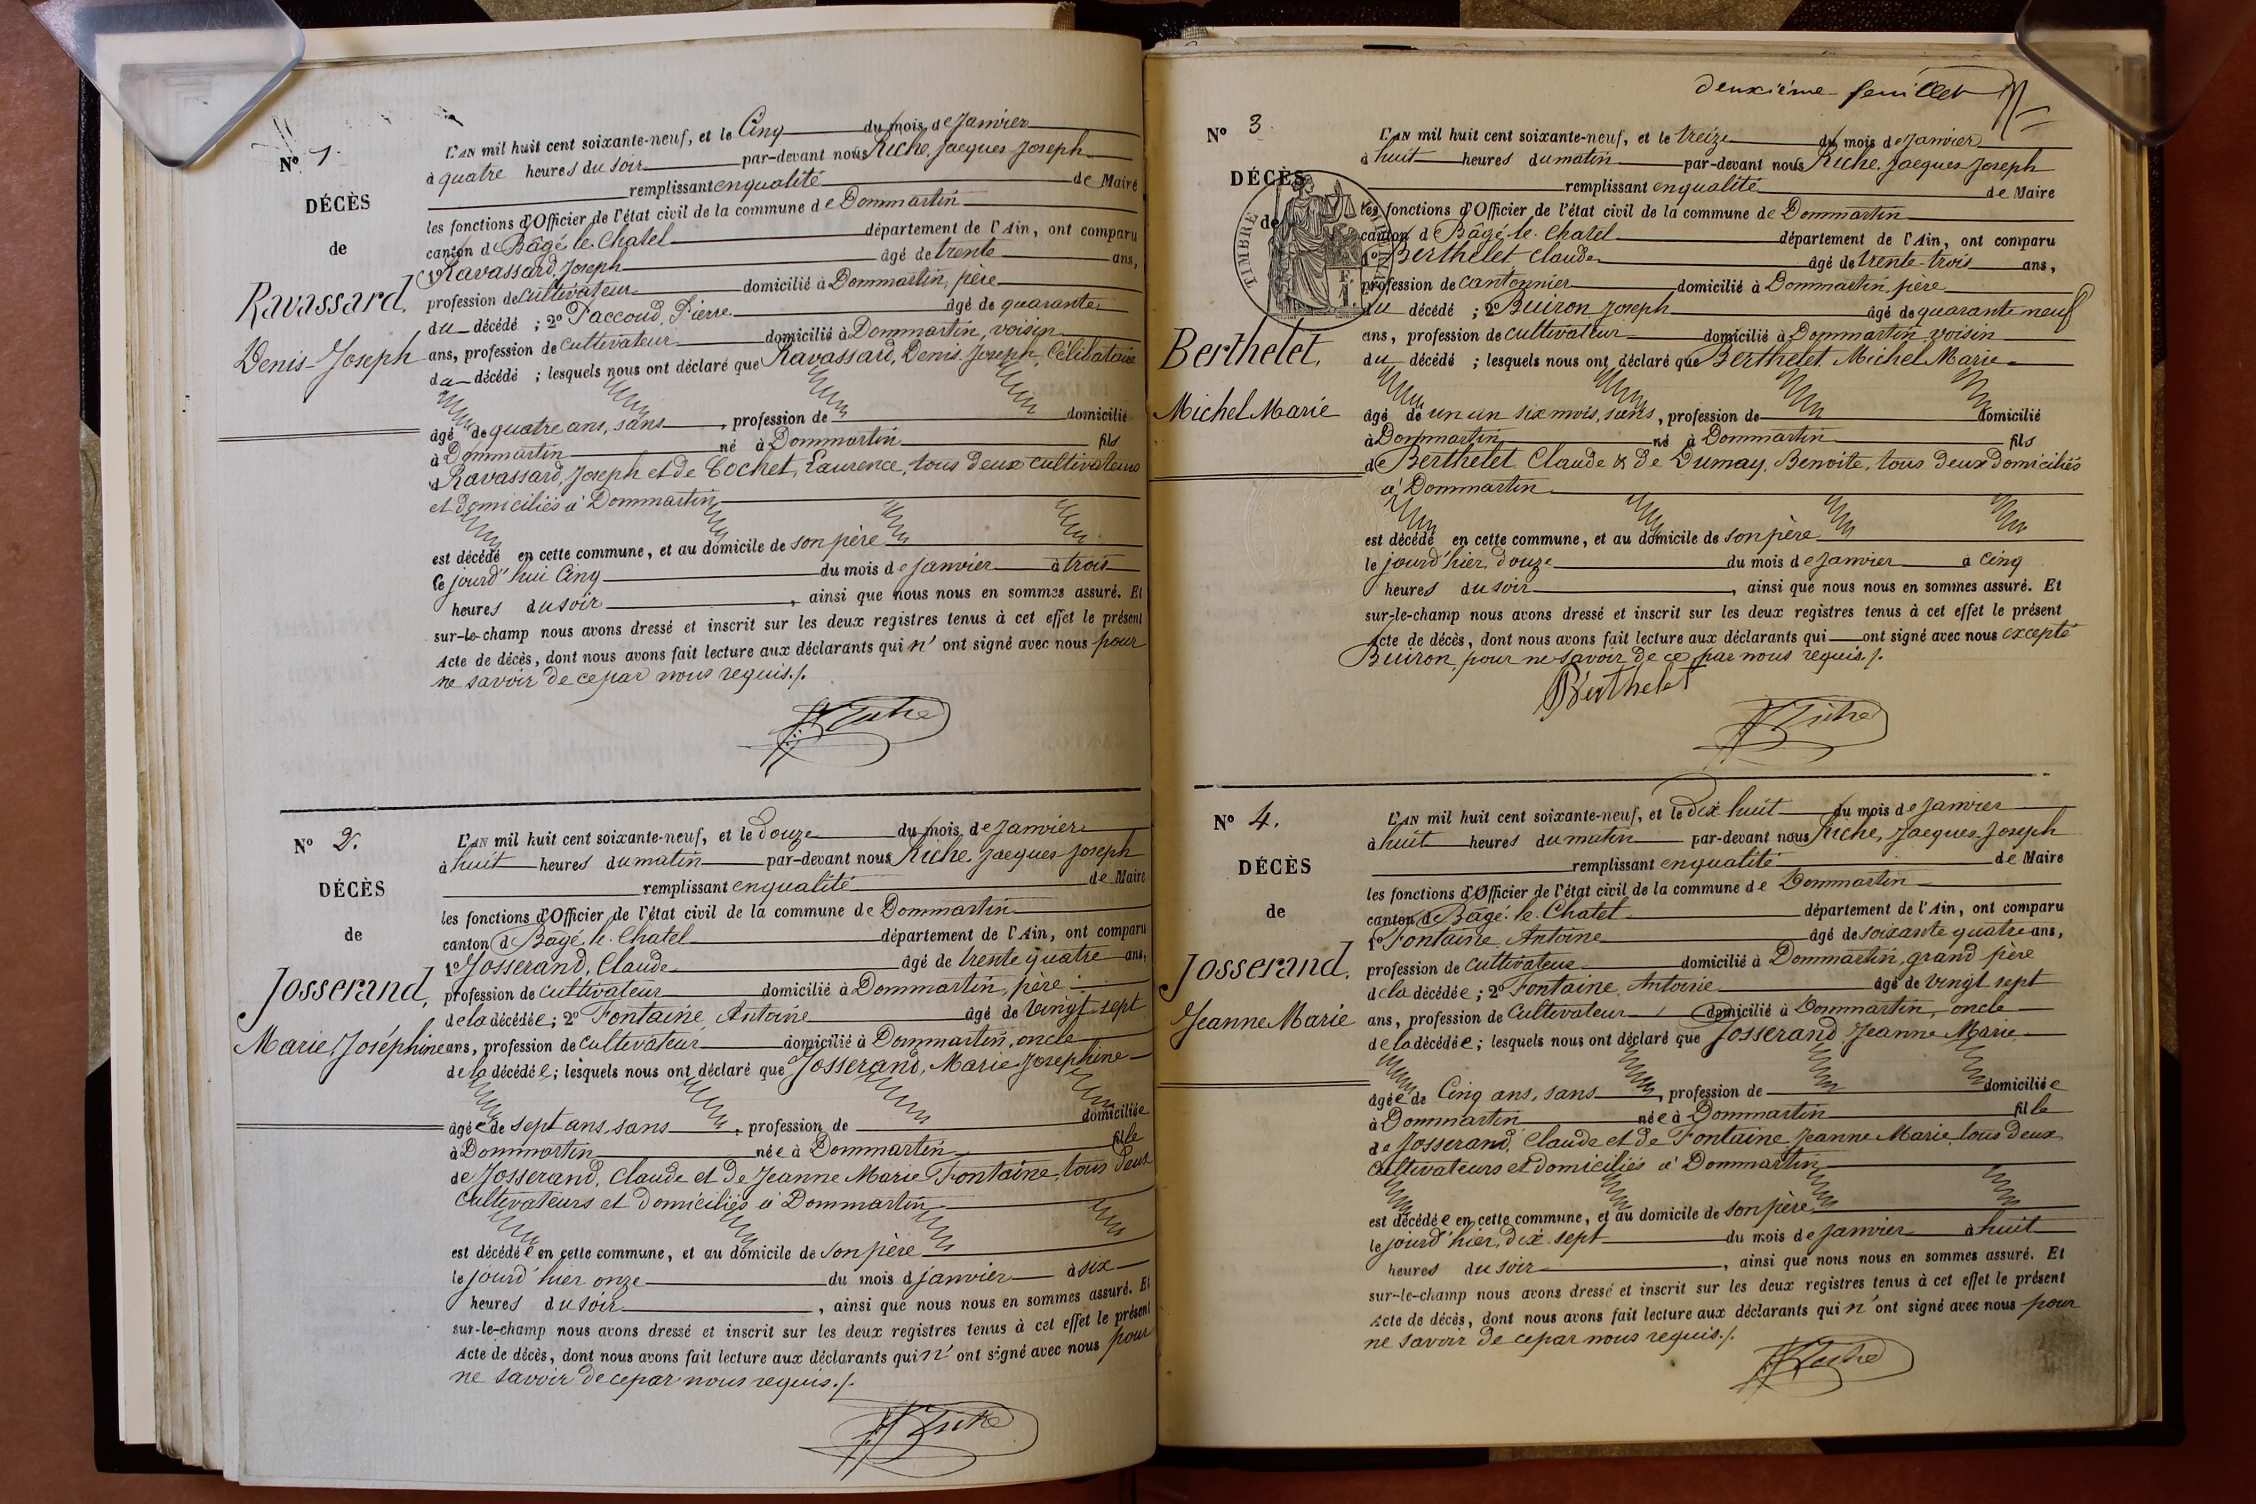 N° 1.
DÉCÈS
de
Ravassard,
Denis-Joseph
L'AN mil huit cent soixante-neuf, et le Cinq du mois de Janvier
à quatre heures du soir par-devant nous Riche, Jacques Joseph
remplissant en qualité de Maire
les fonctions d'Officier de l'état civil de la commune de Dommartin
canton de Bâgé le Chatel département de l'Ain, ont comparu
Ravassard, Joseph âgé de trente ans,
profession de cultivateur domicilié à Dommartin, père
du décédé ; 2° Paccoud, Pierre âgé de quarante
ans, profession de cultivateur domicilié à Dommartin, voisin
du décédé ; lesquels nous ont déclaré que Ravassard, Denis Joseph, Célibataire
âgé de quatre ans, sans , profession de domicilié
à Dommartin né à Dommartin fils
d Ravassard, Joseph et de Cochet, Laurence, tous deux cultivateurs
et domiciliés à Dommartin
est décédé en cette commune, et au domicile de son père
Ce jourd'hui Cinq du mois de janvier à trois
heures du soir , ainsi que nous nous en sommes assuré. Et
sur-le-champ nous avons dressé et inscrit sur les deux registres tenus à cet effet le présent
Acte de décès, dont nous avons fait lecture aux déclarants qui n' ont signé avec nous pour
ne savoir de ce par nous requis./.
Riche
N° 2.
DÉCÈS
de
Josserand,
Marie Joséphine
L'AN mil huit cent soixante-neuf, et le douze du mois de Janvier
à huit heures du matin par-devant nous Riche, Jacques Joseph
remplissant en qualité de Maire
les fonctions d'Officier de l'état civil de la commune de Dommartin
canton d Bâgé le Chatel département de l'Ain, ont comparu
1° Josserand, Claude âgé de trente quatre ans,
profession de cultivateur domicilié à Dommartin, père
de la décédée ; 2° Fontaine, Antoine âgé de vingt sept
ans, profession de cultivateur domicilié à Dommartin, oncle
de la décédée ; lesquels nous ont déclaré que Josserand, Marie Josephine
âgée de sept ans, sans , profession de domiciliée
à Dommartin née à Dommartin fille
de Josserand, Claude et de Jeanne Marie Fontaine, tous deux
Cultivateurs et domiciliés à Dommartin
est décédée en cette commune, et au domicile de son père
le jourd'hier onze du mois d janvier à six
heures du soir , ainsi que nous nous en sommes assuré. Et
sur-le-champ nous avons dressé et inscrit sur les deux registres tenus à cet effet le présent
Acte de décès, dont nous avons fait lecture aux déclarants qui n' ont signé avec nous pour
ne savoir de ce par nous requis./.
Riche
deuxième feuillet
N° 3
DÉCÈS
de
TIMBRE
Berthelet,
Michel Marie
L'AN mil huit cent soixante-neuf, et le treize du mois de Janvier
à huit heures du matin par-devant nous Riche, Jacques Joseph
remplissant en qualité de Maire
les fonctions d'Officier de l'état civil de la commune de Dommartin
canton d Bâgé-le-Chatel département de l'Ain, ont comparu
1° Berthelet Claude âgé de trente-trois ans,
profession de cantonnier domicilié à Dommartin, père
du décédé ; 2° Buiron Joseph âgé de quarante neuf
ans, profession de cultivateur domicilié à Dommartin voisin
du décédé ; lesquels nous ont déclaré que Berthelet, Michel Marie
âgé de un an six mois, sans , profession de domicilié
à Dommartin né à Dommartin fils
de Berthelet Claude & de Dumay, Benoite, tous deux domiciliés
à Dommartin
est décédé en cette commune, et au domicile de son père
le jourd'hier, douze du mois de janvier à cinq
heures du soir , ainsi que nous nous en sommes assuré. Et
sur-le-champ nous avons dressé et inscrit sur les deux registres tenus à cet effet le présent
Acte de décès, dont nous avons fait lecture aux déclarants qui ont signé avec nous excepté
Buiron, pour ne savoir de ce par nous requis./.
Berthelet
Riche
N° 4.
DÉCÈS
de
Josserand,
Jeanne Marie
L'AN mil huit cent soixante-neuf, et le Dix huit du mois de Janvier
à huit heures du matin par-devant nous Riche, Jacques Joseph
remplissant en qualité de Maire
les fonctions d'Officier de l'état civil de la commune de Dommartin
canton d Bâgé-le-Chatel département de l'Ain, ont comparu
1° Fontaine, Antoine âgé de soixante quatre ans,
profession de cultivateur domicilié à Dommartin, grand père
de la décédée ; 2° Fontaine, Antoine âgé de vingt sept
ans, profession de Cultivateur domicilié à Dommartin, oncle
de la décédée ; lesquels nous ont déclaré que Josserand, Jeanne Marie
âgée de Cinq ans, sans , profession de domiciliée
à Dommartin née à Dommartin fille
de Josserand, Claude et de Fontaine Jeanne Marie, tous deux
Cultivateurs et domiciliés à Dommartin
est décédée en cette commune, et au domicile de son père
le jourd'hier, dix sept du mois de janvier à huit
heures du soir , ainsi que nous nous en sommes assuré. Et
sur-le-champ nous avons dressé et inscrit sur les deux registres tenus à cet effet le présent
Acte de décès, dont nous avons fait lecture aux déclarants qui n' ont signé avec nous pour
ne savoir de ce par nous requis./.
Riche